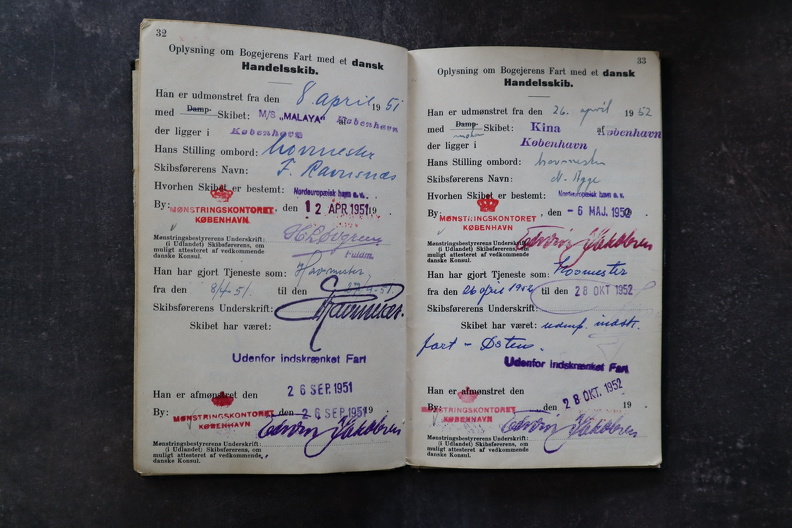 32
Oplysning om Bogejerens Fart med et dansk
Handelsskib.
Han er udmønstret fra den 8. april 1951
med Damp- Skibet: M/S „MALAYA" af København
der ligger i København
Hans Stilling ombord: hovmester
Skibsførerens Navn: F. Ravnsnæs
Hvorhen Skibet er bestemt: Nordeuropæisk havn o. v.
By: MØNSTRINGSKONTORET KØBENHAVN, den 12 APR. 1951 19
Mønstringsbestyrerens Underskrift:
(i Udlandet) Skibsførerens, om
muligt attesteret af vedkommende
danske Konsul.
Fuldm.
Han har gjort Tjeneste som: Hovmester,
fra den 8/4-51. til den
Skibsførerens Underskrift:
Skibet har været:
Udenfor indskrænket Fart
Han er afmønstret den 26 SEP. 1951
By: MØNSTRINGSKONTORET KØBENHAVN den 26 SEP. 1951 19
Edvin Jakobsen
Mønstringsbestyrerens Underskrift:
(i Udlandet) Skibsførerens, om
muligt attesteret af vedkommende
danske Konsul.
33
Oplysning om Bogejerens Fart med et dansk
Handelsskib.
Han er udmønstret fra den 26. april 1952
med Damp- motor Skibet: Kina af København
der ligger i København
Hans Stilling ombord: hovmester
Skibsførerens Navn: N. Bygge
Hvorhen Skibet er bestemt: Nordeuropæisk havn o. v.
By: MØNSTRINGSKONTORET KØBENHAVN, den -6 MAJ. 1952
Edvin Jakobsen
Mønstringsbestyrerens Underskrift:
(i Udlandet) Skibsførerens, om
muligt attesteret af vedkommende
danske Konsul.
Han har gjort Tjeneste som: Hovmester
fra den 26 april 1952 til den 28 OKT 1952
Skibsførerens Underskrift:
Skibet har været: udenf. indsk.
fart - Østen.
Udenfor indskrænket Fart
Han er afmønstret den 28 OKT. 1952
By: MØNSTRINGSKONTORET KØBENHAVN 19
Edvin Jakobsen
Mønstringsbestyrerens Underskrift:
(i Udlandet) Skibsførerens, om
muligt attesteret af vedkommende
danske Konsul.